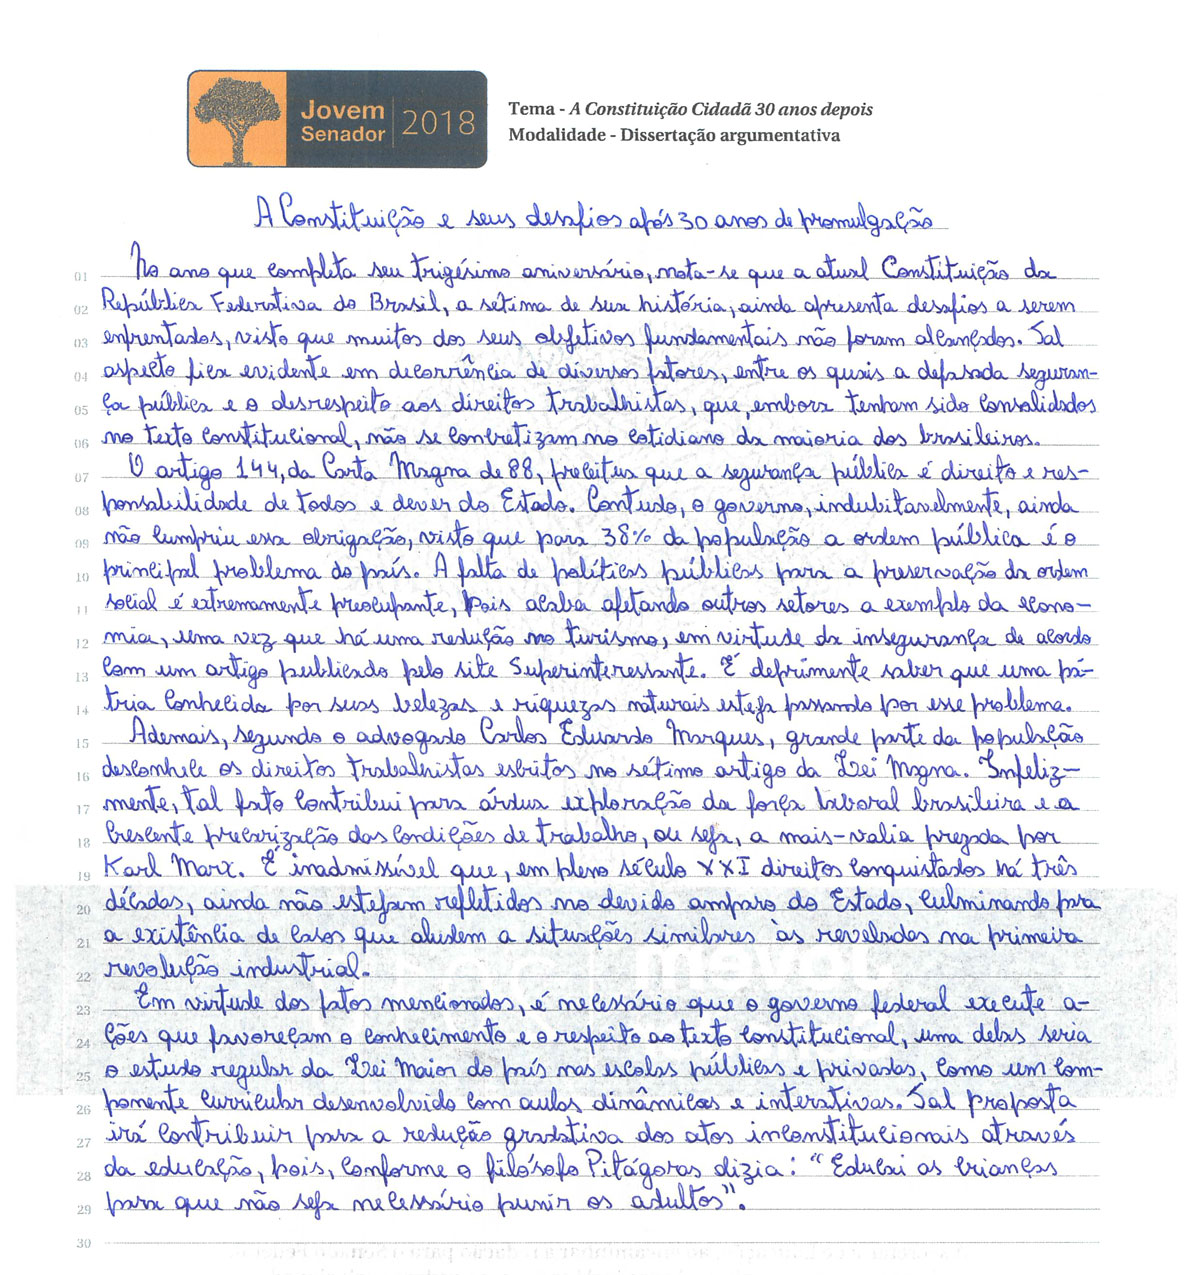 Jovem
Senador
2018
Tema - A Constituição Cidadã 30 anos depois
Modalidade - Dissertação argumentativa
A Constituição e seus desafios após 30 anos de promulgação
01 No ano que completa seu trigésimo aniversário, nota-se que a atual Constituição da
02 República Federativa do Brasil, a sétima de sua história, ainda apresenta desafios a serem
03 enfrentados, visto que muitos dos seus objetivos fundamentais não foram alcançados. Tal
04 aspecto fica evidente em decorrência de diversos fatores, entre os quais a defasada seguran-
05 ça pública e o desrespeito aos direitos trabalhistas, que, embora tenham sido consolidados
06 no texto constitucional, não se concretizam no cotidiano da maioria dos brasileiros.
07 O artigo 144, da Carta Magna de 88, preceitua que a segurança pública é direito e res-
08 ponsabilidade de todos e dever do Estado. Contudo, o governo, indubitavelmente, ainda
09 não cumpriu essa obrigação, visto que para 38% da população a ordem pública é o
10 principal problema do país. A falta de políticas públicas para a preservação da ordem
11 social é extremamente preocupante, pois acaba afetando outros setores a exemplo da econo-
12 mia, uma vez que há uma redução no turismo, em virtude da insegurança de acordo
13 com um artigo publicado pelo site Superinteressante. É deprimente saber que uma pá-
14 tria conhecida por suas belezas e riquezas naturais esteja passando por esse problema.
15 Ademais, segundo o advogado Carlos Eduardo Marques, grande parte da população
16 desconhece os direitos trabalhistas escritos no sétimo artigo da Lei Magna. Infeliz-
17 mente, tal fato contribui para árdua exploração da força laboral brasileira e a
18 crescente precarização das condições de trabalho, ou seja, a mais-valia pregada por
19 Karl Marx. É inadmissível que, em pleno século XXI direitos conquistados há três
20 décadas, ainda não estejam refletidos no devido amparo do Estado, culminando para
21 a existência de casos que aludem a situações similares às reveladas na primeira
22 revolução industrial.
23 Em virtude dos fatos mencionados, é necessário que o governo federal execute a-
24 ções que favoreçam o conhecimento e o respeito ao texto constitucional, uma delas seria
25 o estudo regular da Lei Maior do país nas escolas públicas e privadas, como um com-
26 ponente curricular desenvolvido com aulas dinâmicas e interativas. Tal proposta
27 irá contribuir para a redução gradativa dos atos inconstitucionais através
28 da educação, pois, conforme o filósofo Pitágoras dizia: "Educai as crianças
29 para que não seja necessário punir os adultos".
30